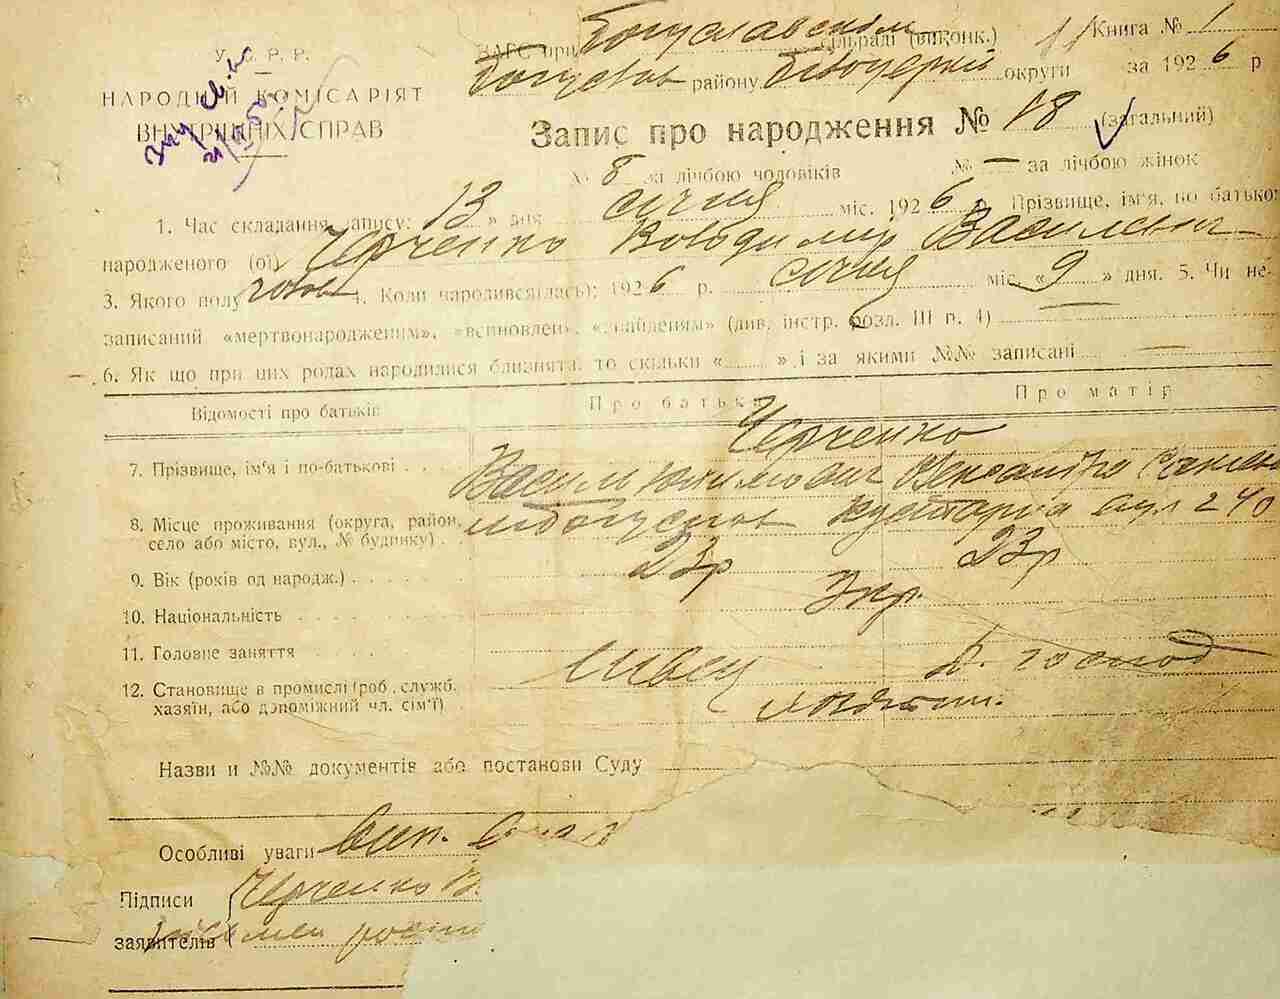 У. С. Р. Р.
НАРОДНІЙ КОМІСАРІЯТ
ВНУТРІШНІХ СПРАВ
ЗАГС при Богуславськім сільраді (виконк.) Книга № 1
району округи за 1926 р
Запис про народження № 18 (загальний)
№ 8 за лічбою чоловіків № — за лічбою жінок
1. Час складання запису: 13 » дня січня міс. 1926 р. Прізвище, ім'я, по батькові
народженого (ої) Черченко Володимир Васильєвич
3. Якого полу чолов 4. Коли народився(лась): 1926 р. січня міс. «9» дня. 5. Чи не-
записаний «мертвонародженим», «всиновлен», «знайденям» (див. інстр. розл. III п. 4) —
6. Як що при цих родах народилися близнята, то скільки «......» і за якими №№ записані —
Відомості про батьків Про батька Про матір
Черченко
7. Прізвище, ім'я і по-батькові . . . Василь
8. Місце проживання (округа, район, село або місто, вул., № будинку) . м Богуслав вул 240
9. Вік (років од народж.) . . . . 23р 23р
10. Національність . . . . Укр.
11. Головне заняття . . . Швец Д. господ
12. Становище в промислі (роб., служб. хазяїн, або допоміжний чл. сім'ї) .
Назви и №№ документів або постанови Суду
Особливі уваги вип.
Підписи Черченко В.
заявителів